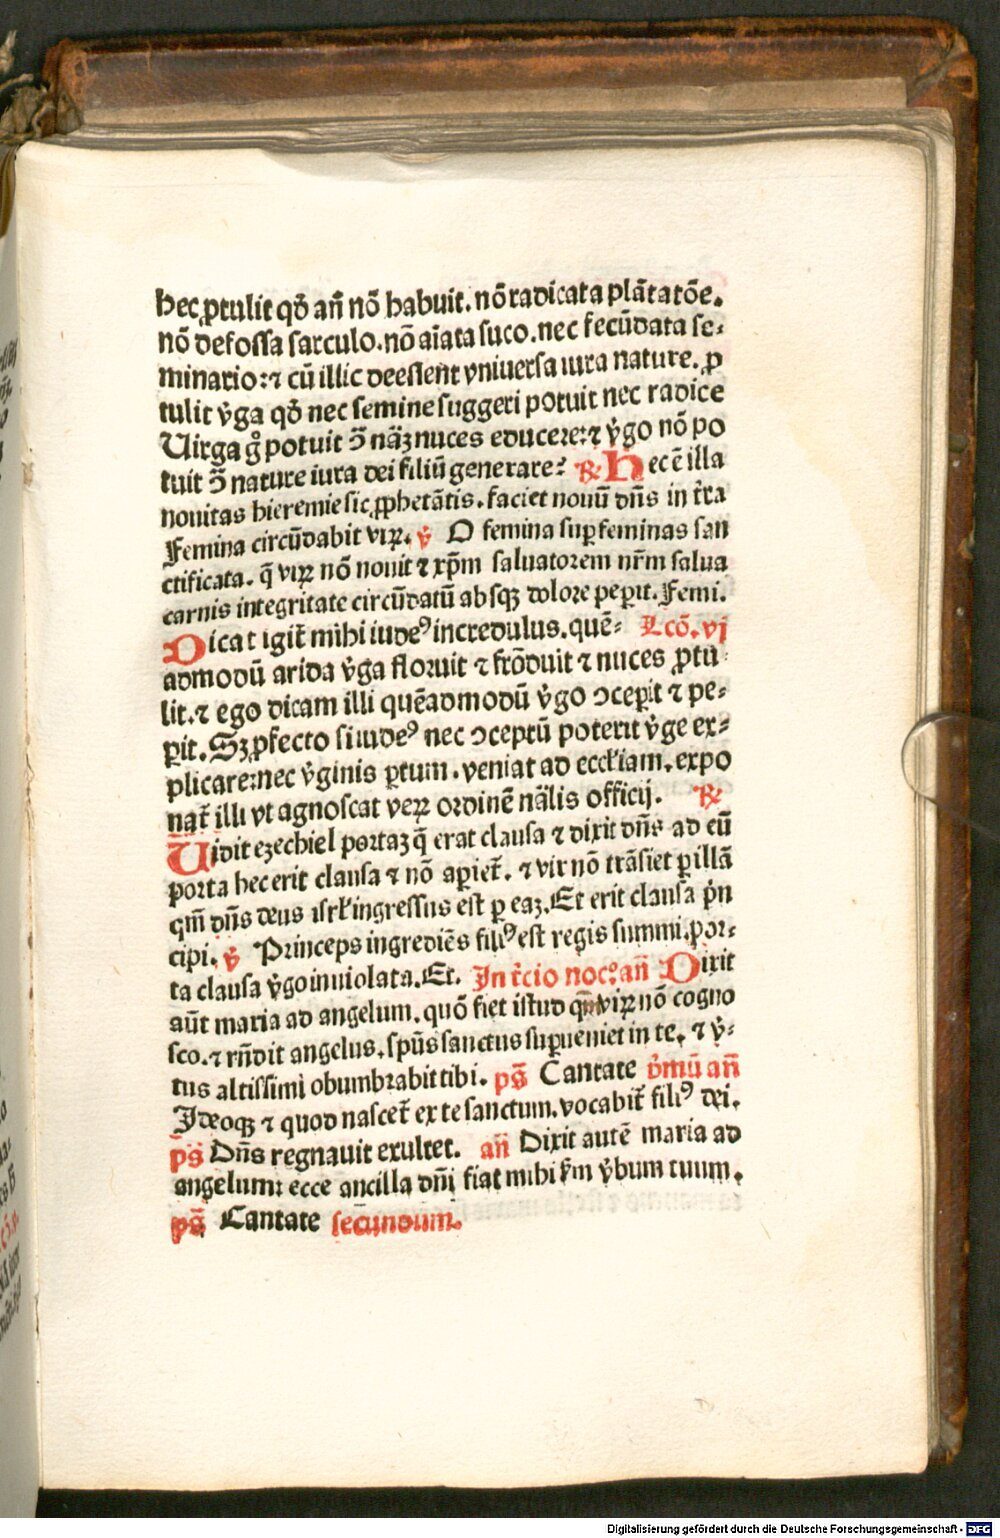 hec ꝓtulit qđ añ nõ habuit. nõ radicata plãtatõe.
nõ defossa sarculo. nõ aĩata suco. nec fecũdata se⸗
minario: ⁊ cũ illic deessent vniuersa iura nature. ꝓ
tulit v̓ga qđ nec semine suggeri potuit nec radice
Uirga g̊ potuit ↄ̃ nãꝫ nuces educere: ⁊ v̓go nõ po
tuit ↄ̃ nature iura dei filiũ generare? ℟ Hec ē illa
nouitas hieremie sic ꝓphetãtis. faciet nouũ dñs in t̓ra
Femina circũdabit viꝝ. ℣ O femina suꝑ feminas san
ctificata. q̃ viꝝ nõ nouit ⁊ xp̄m saluatorem nr̄m salua
carnis integritate circũdatũ absqꝫ dolore peperit. Femi.
Dicat igit̄ mihi iudeꝰ incredulus. quē⸗ Lcõ. vj
admodũ arida v̓ga floruit ⁊ frõduit ⁊ nuces ꝓtu
lit. ⁊ ego dicam illi quēadmodũ v̓go ↄcepit ⁊ pe⸗
ꝑit. Sꝫ ꝓfecto si iudeꝰ nec ↄceptũ poterit v̓ge ex⸗
plicare: nec v̓ginis ꝑtum. veniat ad eccł̓iam. expo
nat̄ illi vt agnoscat veꝝ ordinē nãlis officij. ℟
Uidit ezechiel portaꝫ q̃ erat clausa ⁊ dixit dñs ad eũ
porta hec erit clausa ⁊ nõ aꝑiet̄. ⁊ vir nõ trãsiet ꝑ illã
qm̄ dñs deus isrł̓ ingressus est ꝑ eaꝫ. Et erit clausa p̓n
cipi. ℣ Princeps ingrediēs filiꝰ est regis summi. por⸗
ta clausa v̓go inuiolata. Et. In t̓cio nocꝰ. añ Dixit
aũt maria ad angelum. quõ fiet istud qm̄ viꝝ nõ cogno
sco. ⁊ rñdit angelus. spũs sanctus supueniet in te. ⁊ v̓⸗
tus altissimi obumbrabit tibi. ps̄ Cantate p̓mũ añ
Ideoqꝫ ⁊ quod nascet̄ ex te sanctum. vocabit̄ filiꝰ dei.
ps̄ Dñs regnauit exultet. añ Dixit autē maria ad
angelum: ecce ancilla dñi fiat mihi ẜm v̓bum tuum.
ps̄ Cantate secundum.
Digitalisierung gefördert durch die Deutsche Forschungsgemeinschaft - DFG